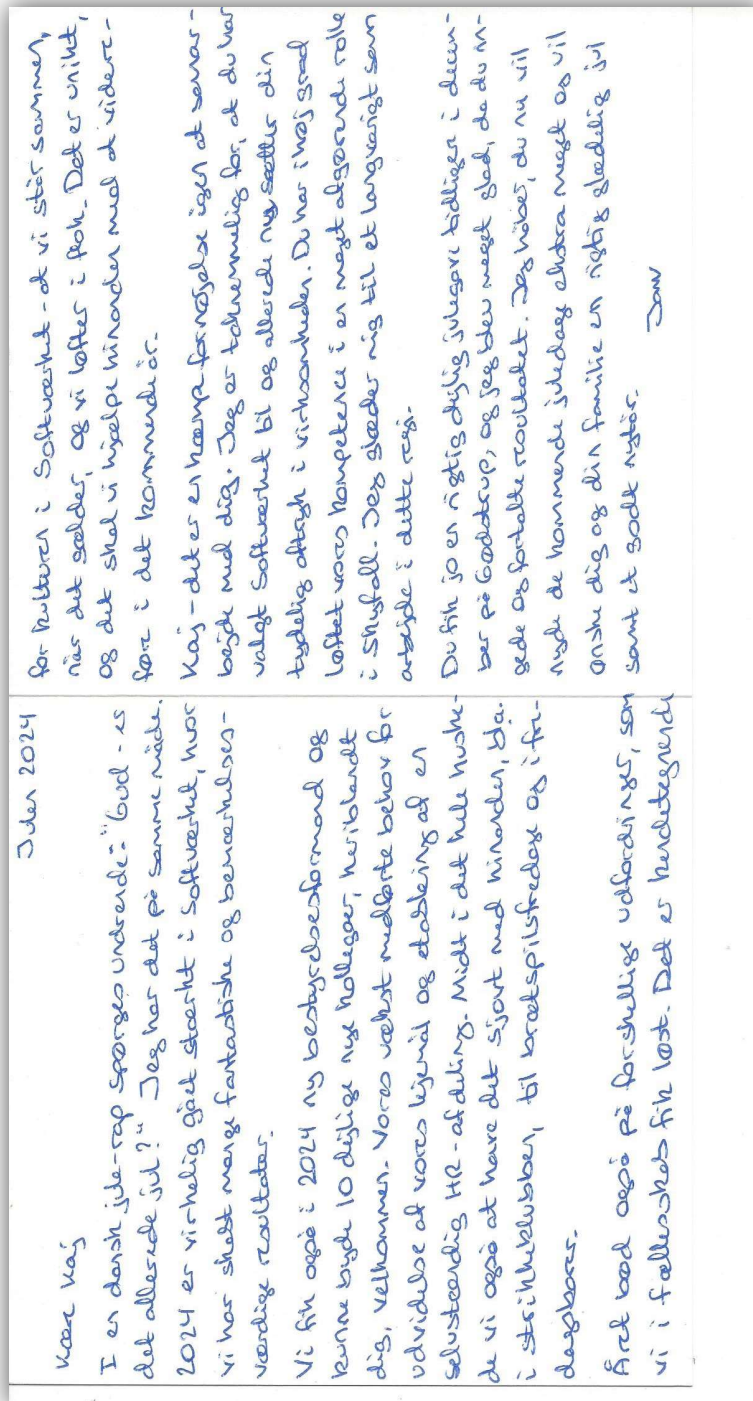 Julen 2024
Kære Kaj
I en dansk jule-rap spørges undrende: "Gud - er
det allerede jul?" Jeg har det på samme måde.
2024 er virkelig gået stærkt i Softværket, hvor
vi har skabt mange fantastiske og bemærkelses-
værdige resultater.
Vi fik også i 2024 ny bestyrelsesformand og
kunne byde 10 dejlige nye kollegaer, heriblandt
dig, velkommen. Vores vækst medførte behov for
udvidelse af vores lejemål og etablering af en
selvstændig HR-afdeling. Midt i det hele huske-
de vi også at have det sjovt med hinanden, bl.a.
i strikkeklubben, til brætspilsfredage og i fre-
dagsbaren.
Året bød også på forskellige udfordringer, som
vi i fællesskab fik løst. Det er kendetegnende
for kulturen i Softværket - at vi står sammen,
når det gælder, og vi løfter i flok. Det er unikt,
og det skal vi hjælpe hinanden med at videre-
føre i det kommende år.
Kaj - det er en kæmpe fornøjelse igen at samar-
bejde med dig. Jeg er taknemmelig for, at du har
valgt Softværket til og allerede nu sætter din
tydelig aftryk i virksomheden. Du har i høj grad
løftet vores kompetence i en meget afgørende rolle
i Skyfall. Jeg glæder mig til et langvarigt sam
arbejde i dette regi.
Du fik jo en rigtig dejlig julegave tidligere i decem-
ber på Gødstrup, og jeg blev meget glad, da du rin-
gede og fortalte resultatet. Jeg håber, du nu vil
nyde de kommende juledage ekstra meget og vil
ønske dig og din familie en rigtig glædelig jul
samt et godt nytår.